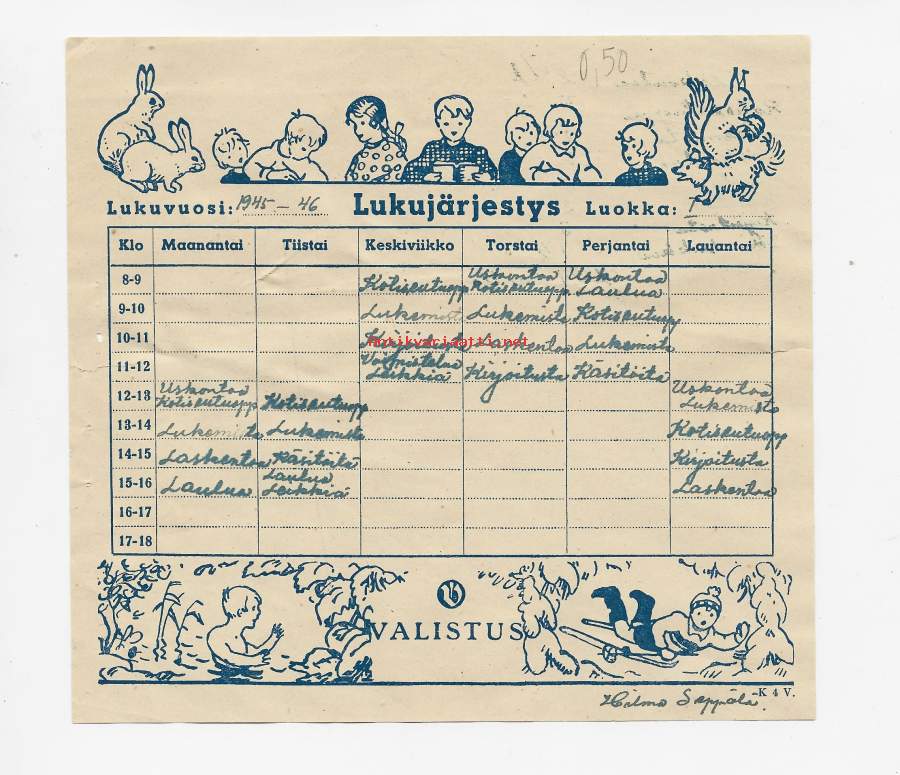 0,50
Lukuvuosi: 1945-46 Lukujärjestys Luokka: I
Klo Maanantai Tiistai Keskiviikko Torstai Perjantai Lauantai
8-9 Kotiseutuopp Uskontoa Kotiseutuopp Uskontoa Laulua
9-10 Lukemista Lukemista Kotiseutuopp
10-11 Kirjoitusta Laskentoa Lukemista
antikvariaatti.net
11-12 Voimistelua Leikkiä Kirjoitusta Käsitöitä
12-13 Uskontoa Kotiseutuopp Kotiseutuopp Uskontoa Lukemista
13-14 Lukemista Lukemista Kotiseutuopp
14-15 Laskentoa Käsitöitä Kirjoitusta
15-16 Laulua Laulua Leikkiä Laskentoa
16-17
17-18
VALISTUS
-K 4 V.
Hilma Seppälä.